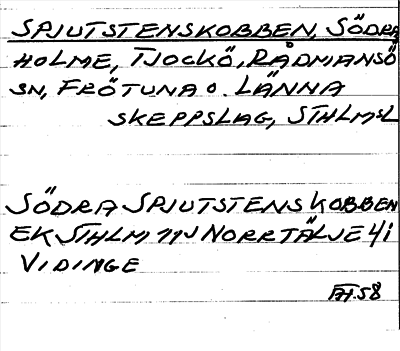 SPJUTSTENSKOBBEN, SÖDRA
HOLME, TJOCKÖ, RÅDMANSÖ
SN, FRÖTUNA O. LÄNNA
SKEPPSLAG, STHLMSL
SÖDRA SPJUTSTENSKOBBEN
EK STHLM 11J NORRTÄLJE 4i
VIDINGE
58